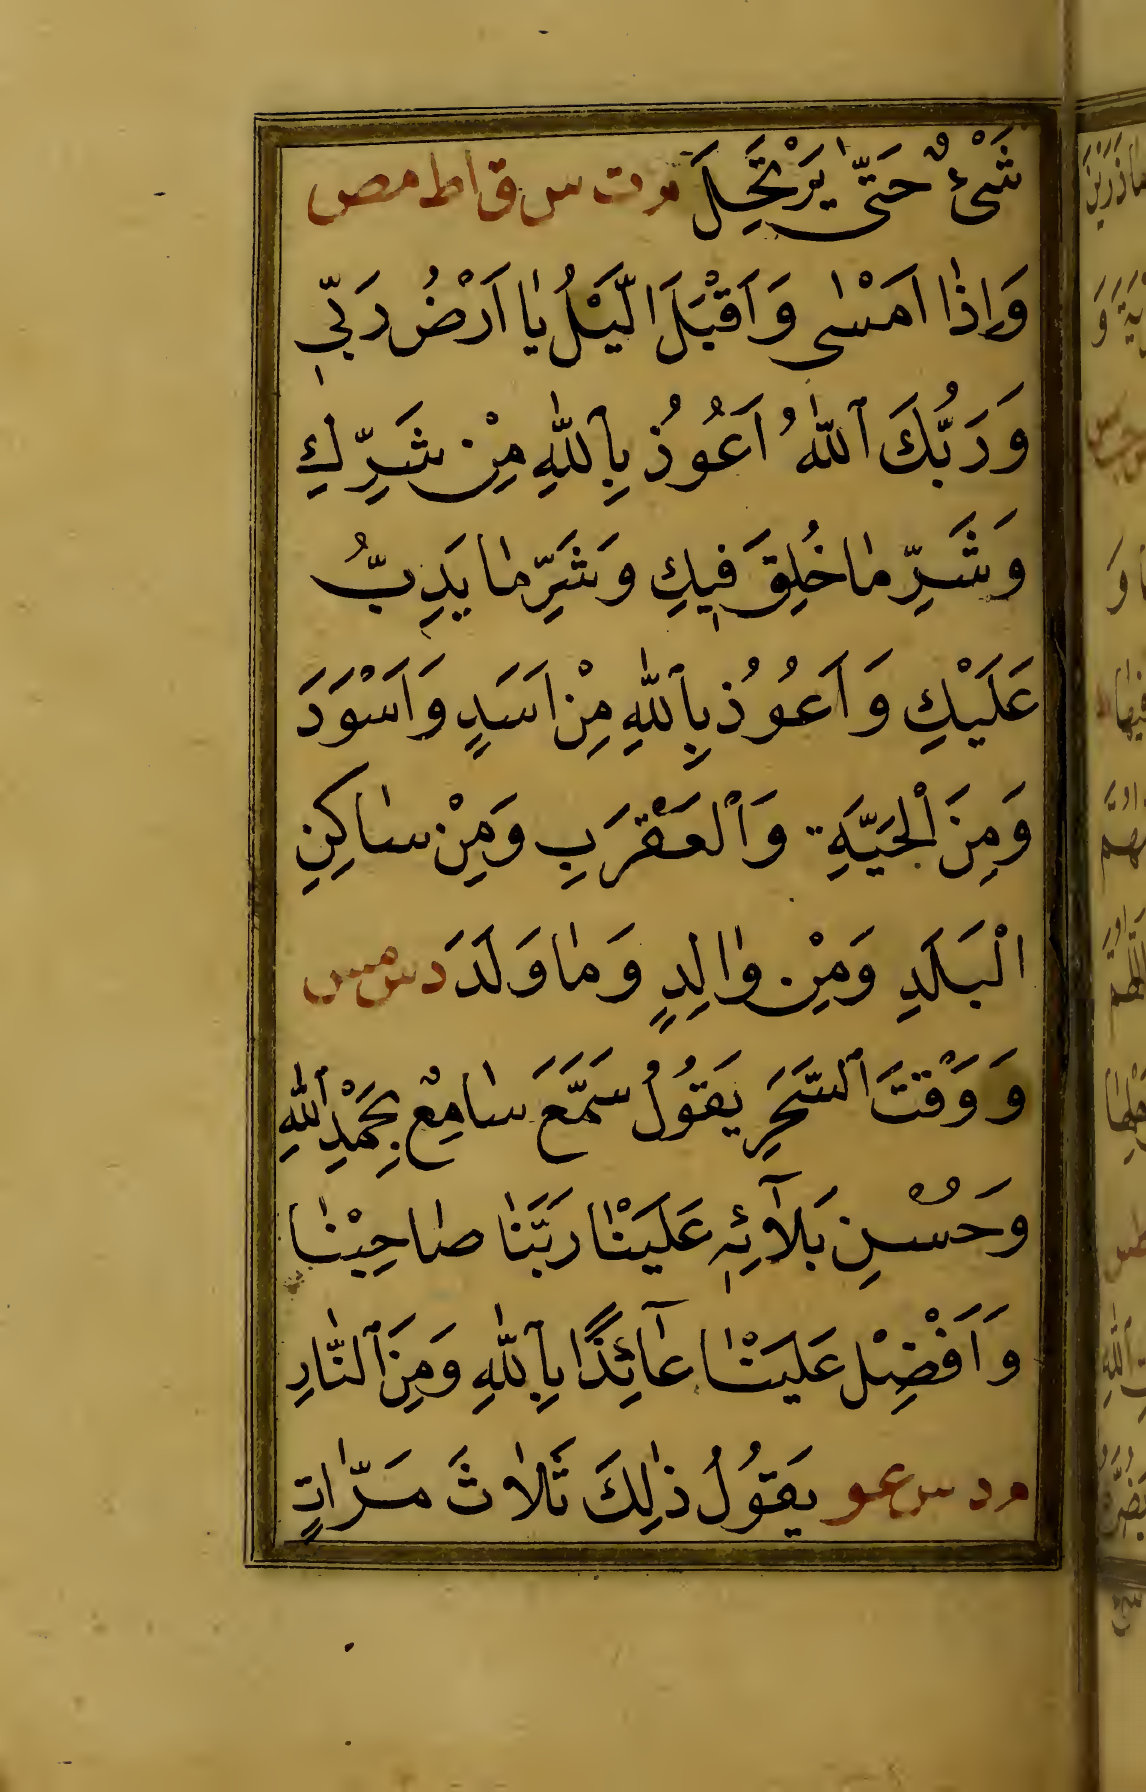 شَىْءٌ حَتّٰى يَرْتَحِلَ م ت س ق اط مص
وَاِذٰا اَمْسٰى وَاَقْبَلَ الَّيْلُ يٰا اَرْضُ رَبّٖى
وَرَبُّكَ ٱللّٰهُ اَعُوُذُ بِٱللّٰهِ مِنْ شَرِّكِ
وَشَرِّ مٰا خُلِقَ فٖيكِ وَشَرِّ مٰا يَدِبُّ
عَلَيْكِ وَاَعُوُذُ بِٱللّٰهِ مِنْ اَسَدٍ وَاَسْوَدَ
وَمِنَ ٱلْحَيَّةِ وَٱلْعَقْرَبِ وَمِنْ سٰاكِنِ
الْبَلَدِ وَمِنْ وٰالِدٍ وَمٰا وَلَدَ د س مس
وَوَقْتَ ٱلسَّحَرِ يَقُوُلُ سَمَّعَ سٰامِعٌ بِحَمْدِ ٱللّٰهِ
وَحُسْنِ بَلَآئِهٖ عَلَيْنٰا رَبَّنٰا صٰاحِبْنٰا
وَاَفْضِلْ عَلَيْنٰا عٰٓائِذًا بِٱللّٰهِ وَمِنَ ٱلنّٰارِ
م د س عو يَقُوُلُ ذٰلِكَ ثَلٰاثَ مَرّٰاتٍ